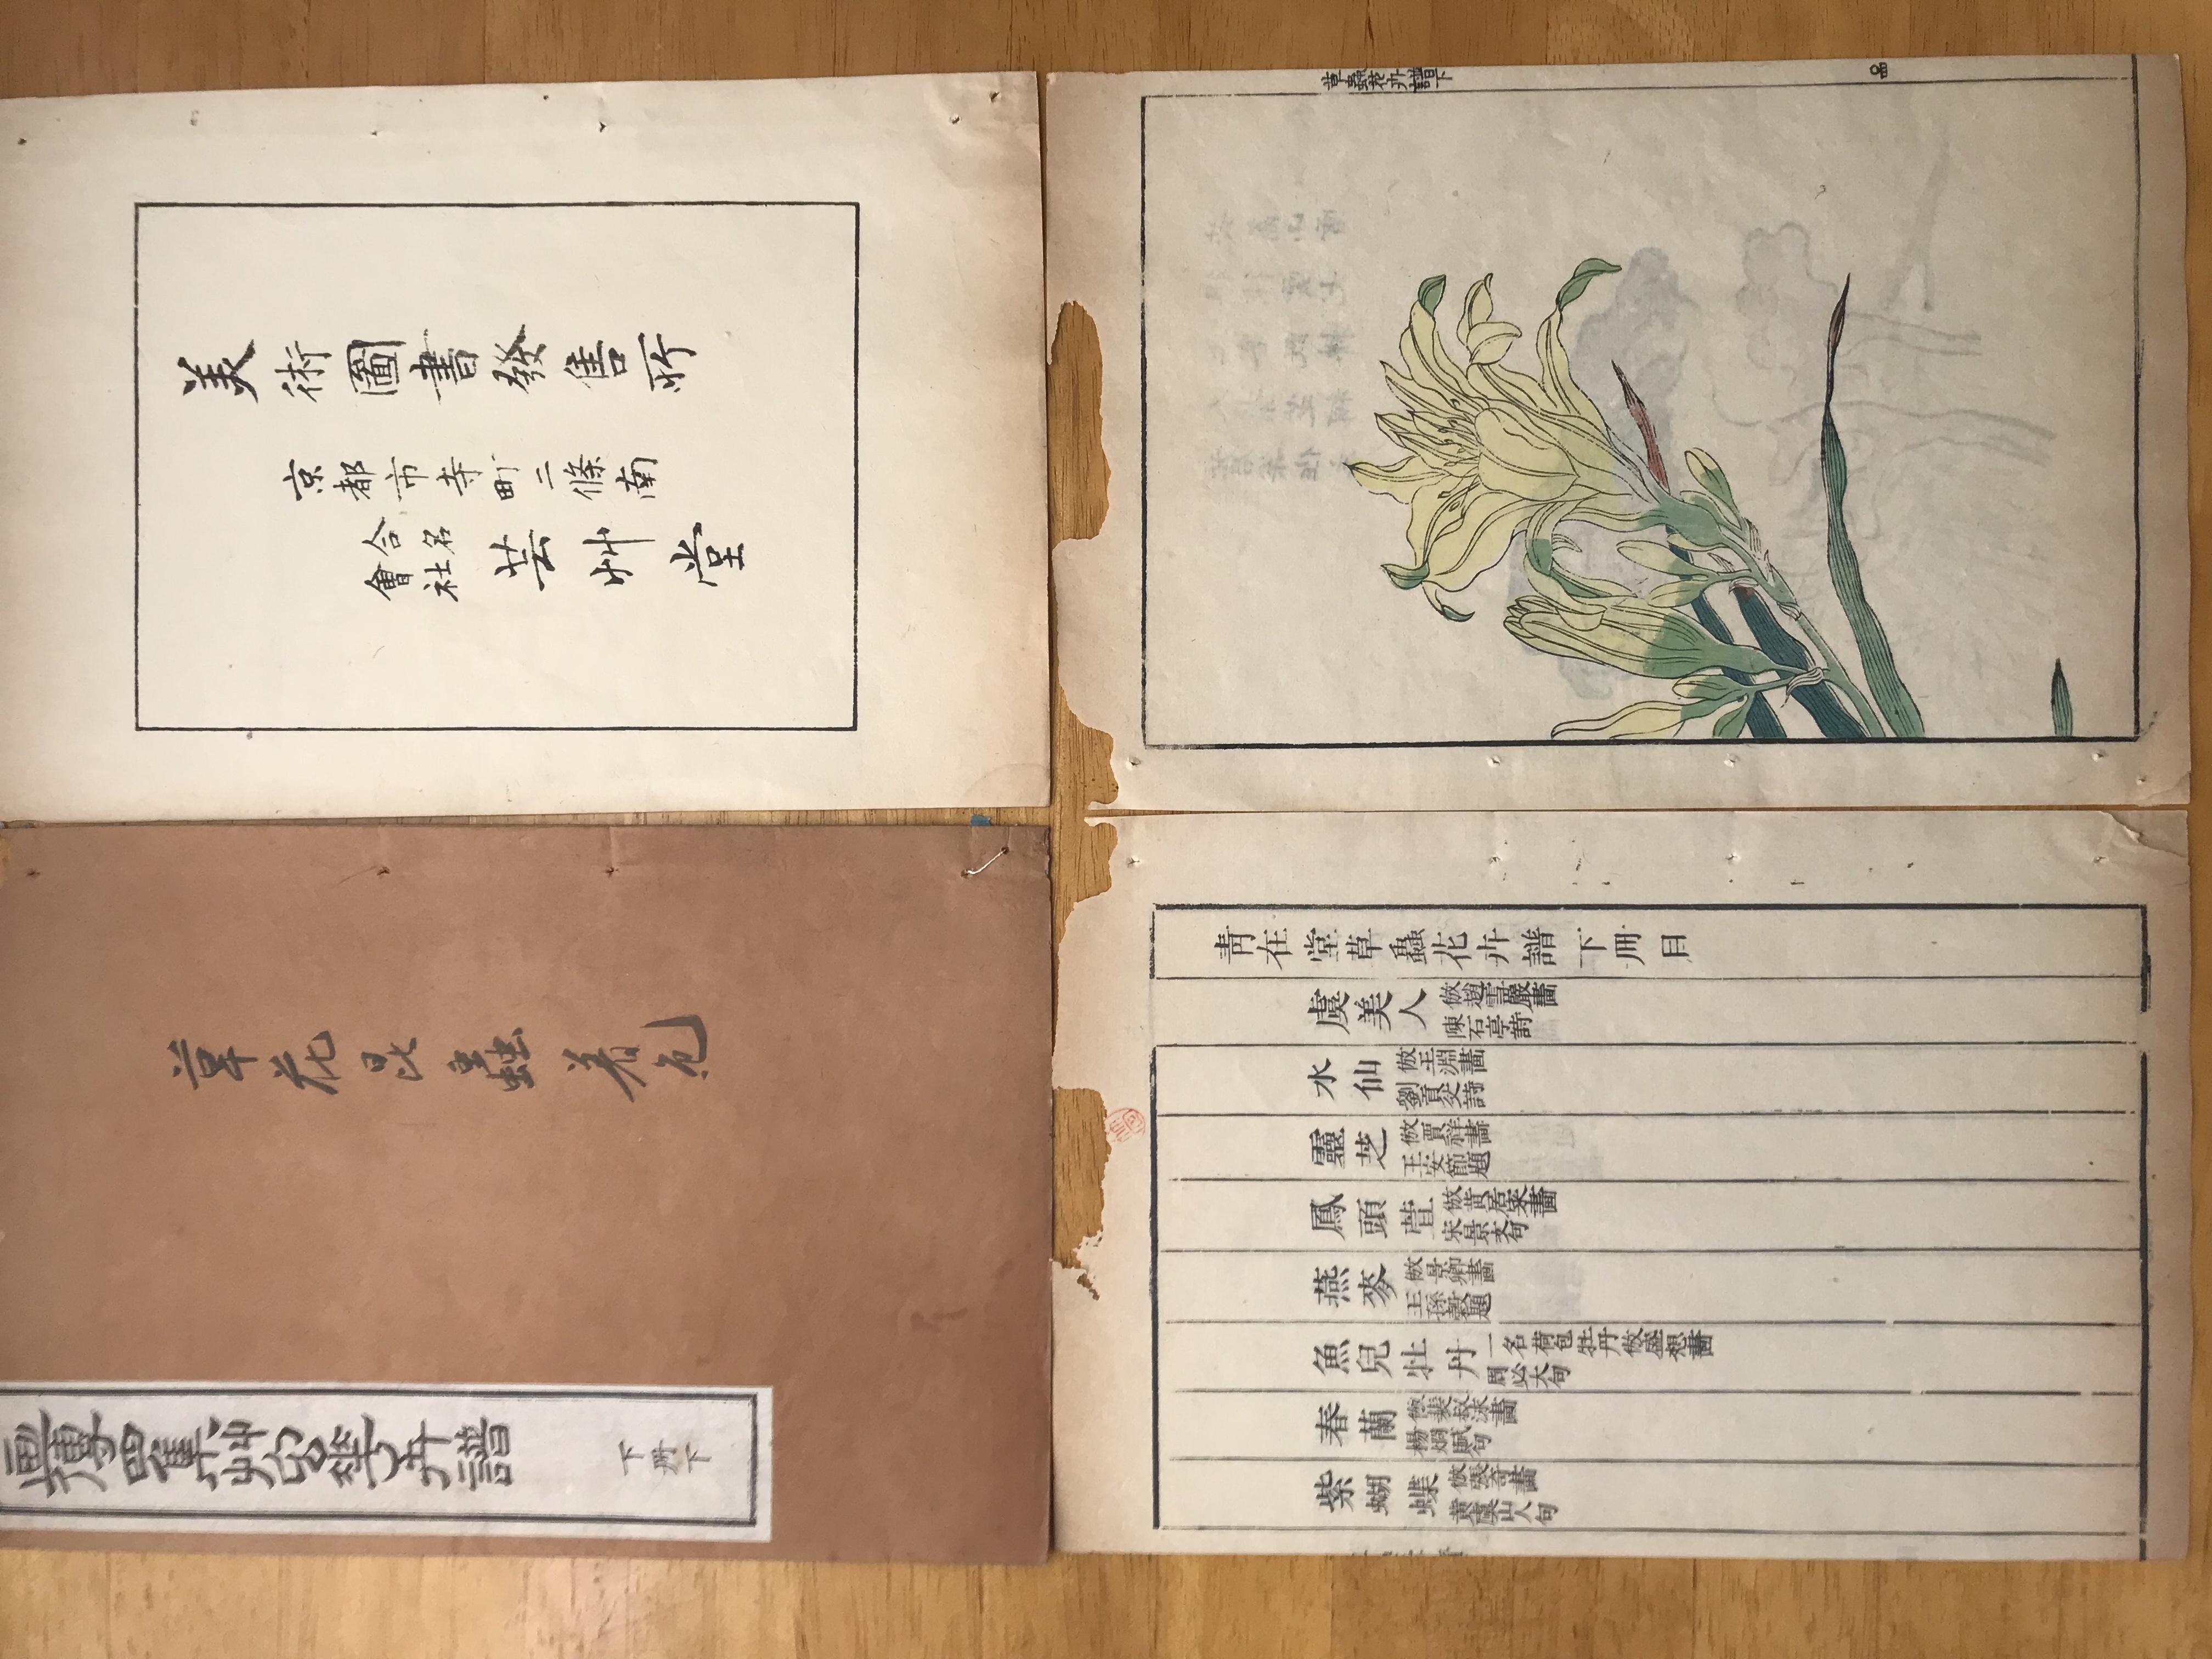 美術圖書發售所
京都市寺町二條南
合名會社
芸艸堂
草蟲花卉譜下
四
草花昆蟲着色
畫傳四集艸蟲華卉譜
下册下
靑在堂草蟲花卉譜下冊目
虞美人 倣趙雪巖畫 陳石亭詩
水仙 倣王淵畫 劉貢父詩
靈芝 倣賈祥畫 王安節題
鳳頭萱 倣黃居寀畫 宋景文句
燕麥 倣景卿畫 王孫穀題
魚兒牡丹 一名荷包牡丹倣盛想畫 周必大句
春蘭 倣裴叔泳畫 楊烱賦句
紫蝴蝶 倣張奇畫 黃虞山人句